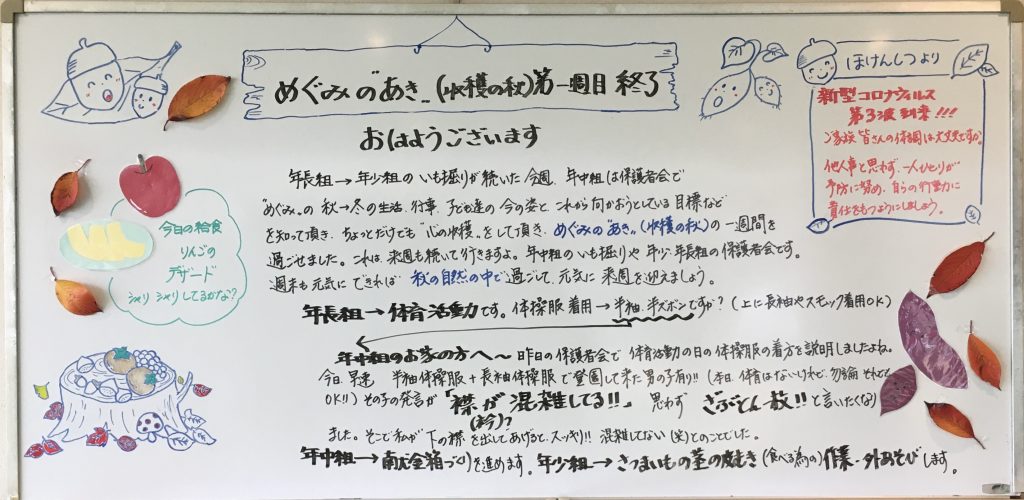 めぐみのあき‥(収穫の秋)第一週目 終了
おはようございます
年長組→年少組の いも掘りが続いた今週、年中組は保護者会で
"めぐみ"の 秋→冬の生活、行事、子ども達の今の姿と、これから向かおうとしている目標など
を知って頂き、ちょっとだけでも"心の収穫"をして頂き、めぐみの"あき"(収穫の秋)の一週間を
過ごせました。これは、来週も続いて行きますよ。年中組のいも掘りや 年少・年長組の保護者会です。
週末も元気に できれば 秋の自然の中で過ごして、元気に 来週を迎えましょう。
年長組→体育活動です。体操服着用→半袖、半ズボンですか?(上に長袖やスモック着用OK)
年中組のお家の方へ〜 昨日の保護者会で 体育活動の日の体操服の着方を説明しましたよね。
今日、早速 半袖体操服+長袖体操服で登園して来た男の子有り!!(本日、体育はないけれど、勿論 それでも
OK!!)その子の発言が「襟が混雑してる!!」 思わず ざぶとん一枚!!と言いたくなり
(衿)?
ました。そこで私が 下の襟を出してあげると、スッキリ!! 混雑してない(笑)とのことでした。
年中組→ 箱づくりを進めます。年少組→さつまいもの茎の皮むき(食べる為の)作業・外あそびします。
今日の給食
りんごの
デザート
シャリ シャリしてるかな?
ほけんしつより
新型コロナウィルス
第3波 到来!!!
ご家族 皆さんの体調は大丈夫ですか。
他人事と思わず、一人ひとりが
予防に努め、自らの行動に
責任をもつようにしましょう。